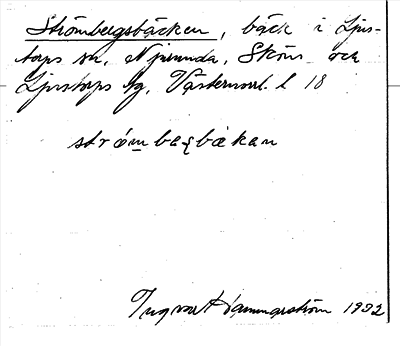 Strömbergsbäcken, bäck i Ljus-
torps sn, Njurunda, Sköns och
Ljustorps tg, Västernorrl. l 18
strömbaʂbäkan
Ingvar Hammarström 1932